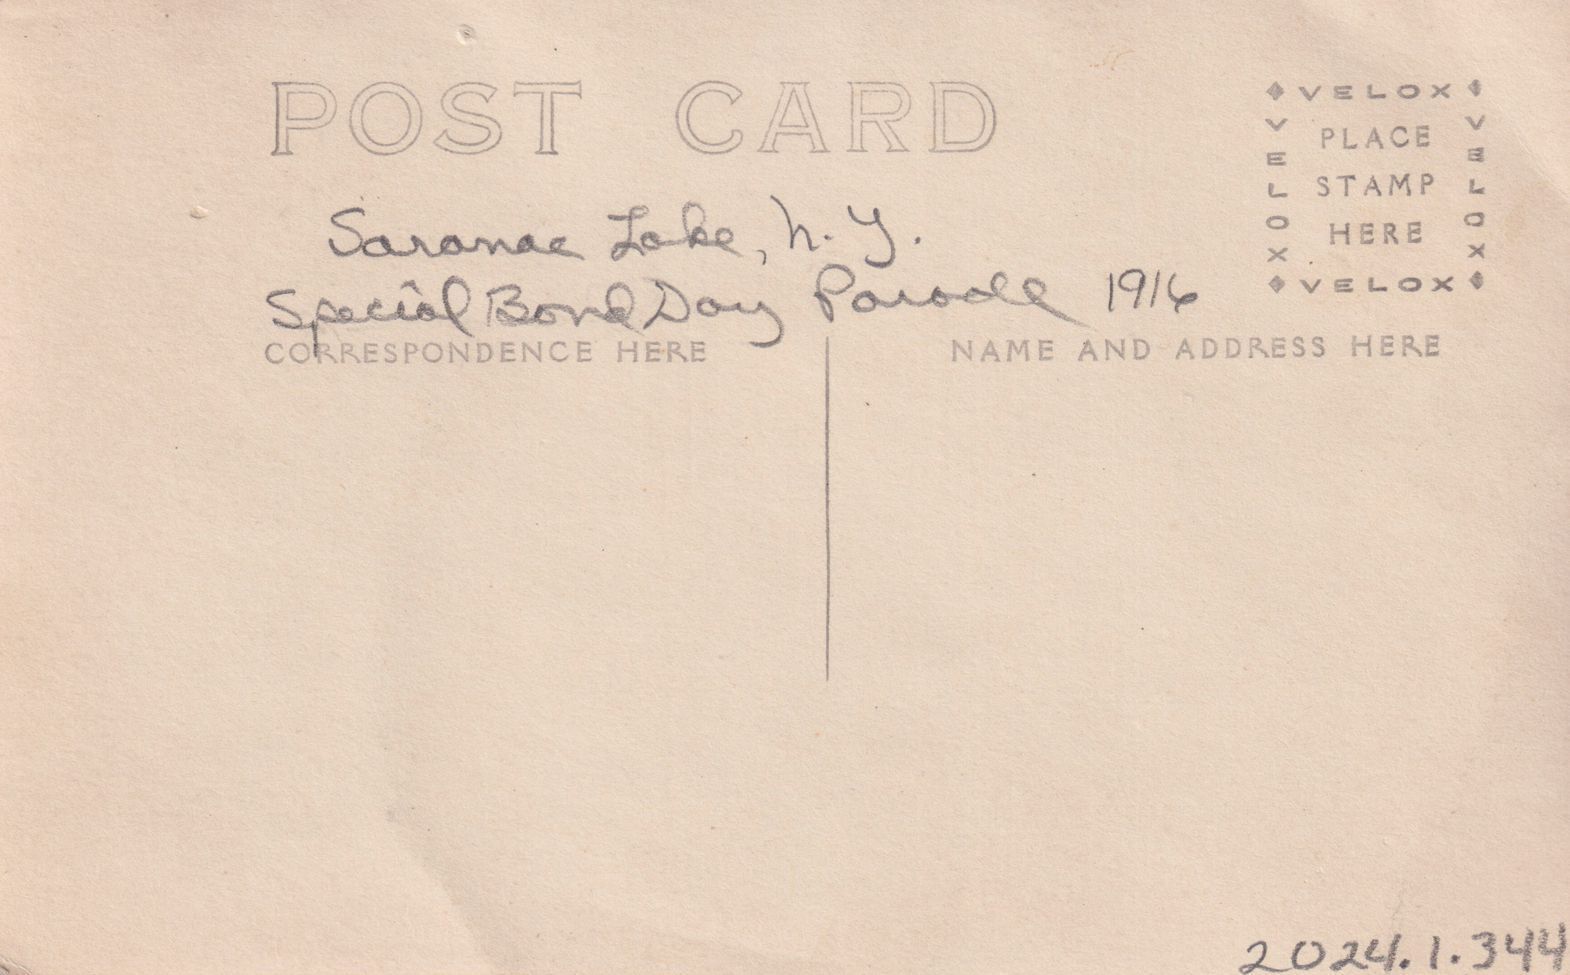 POST CARD
VELOX
VELOX
PLACE
STAMP
HERE
VELOX
VELOX
Saranac Lake, N.Y.
Special Bond Day Parade 1916
CORRESPONDENCE HERE
NAME AND ADDRESS HERE
2024.1.344